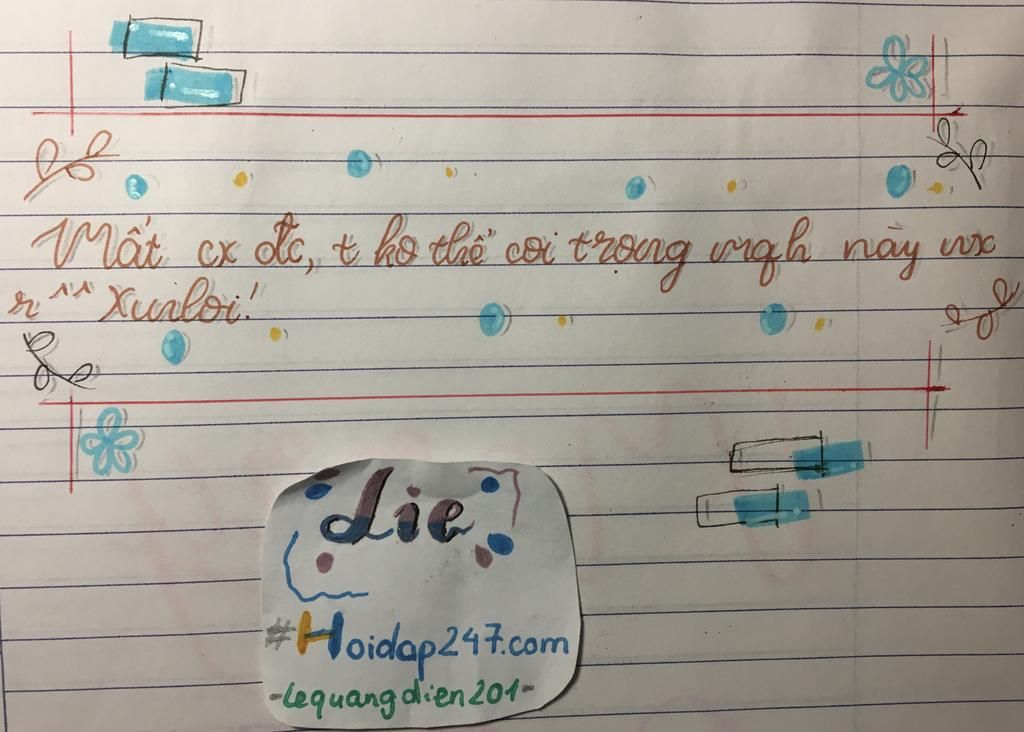 Mất cx đc, t ko thể coi trọng mqh này nx
r ^^ Xuiloi!
die
#Hoidap247.com
-lequangdien201-